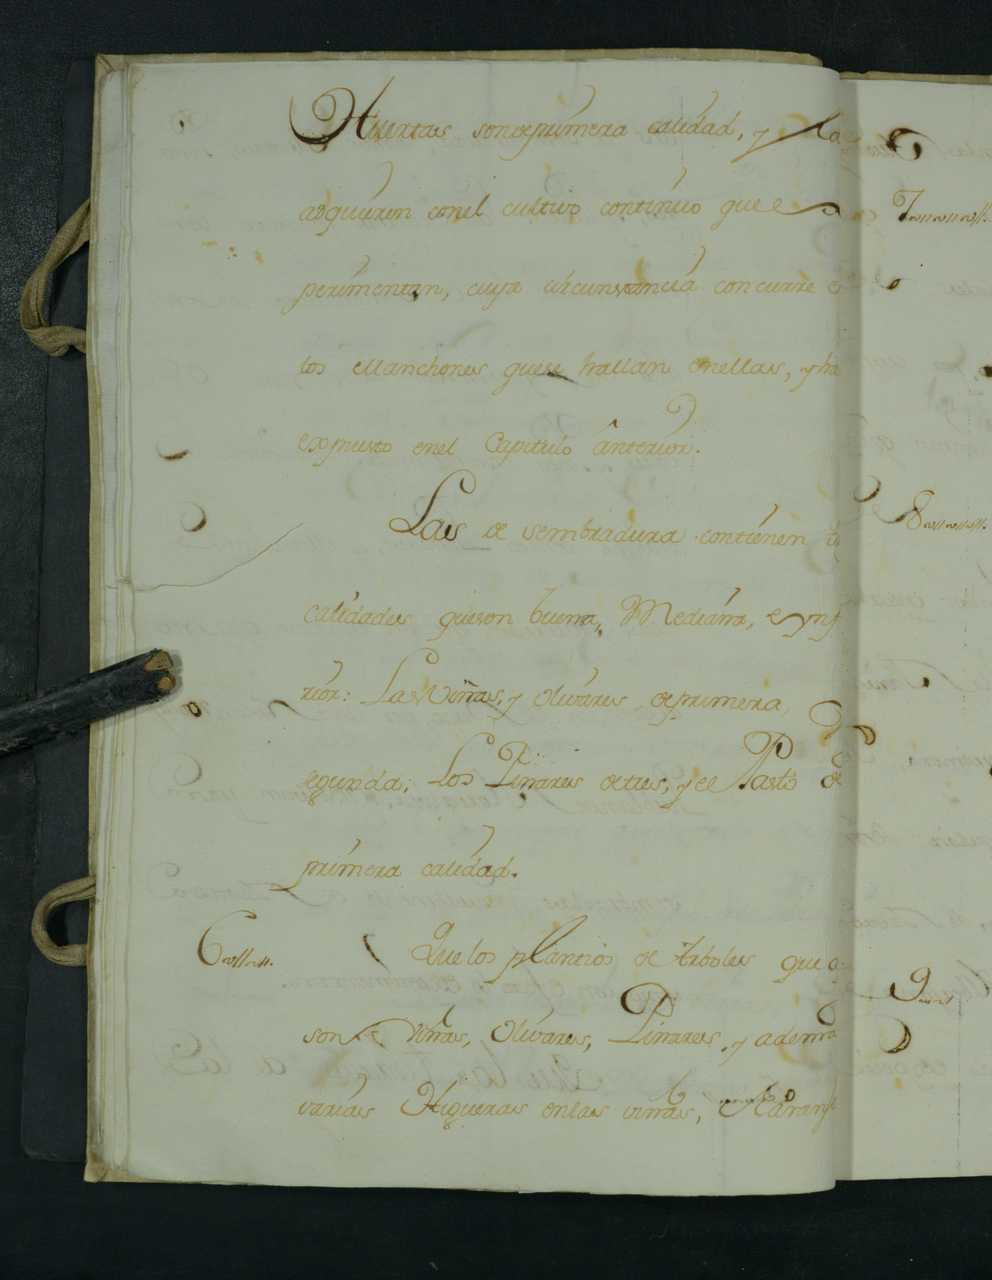 Huertas son de primera calidad, y la
adquieren con el cultivo continuo que e
perimentan, cuya circunstancia concurre e
los Manchones que se hallan en ellas, y ha
expuesto en el Capitulo anterior.
Las de sembradura contienen
calidades que son buena, Mediana, e ynf
rior: Las Viñas, y Olivares de primera,
segunda; Los Pinares de tres, y el Pasto de
primera calidad.
6 Que los plantios de Arboles que
son Viñas, Olivares, Pinares, y adema
varias Higueras en las viñas, Naranj
7
8
9